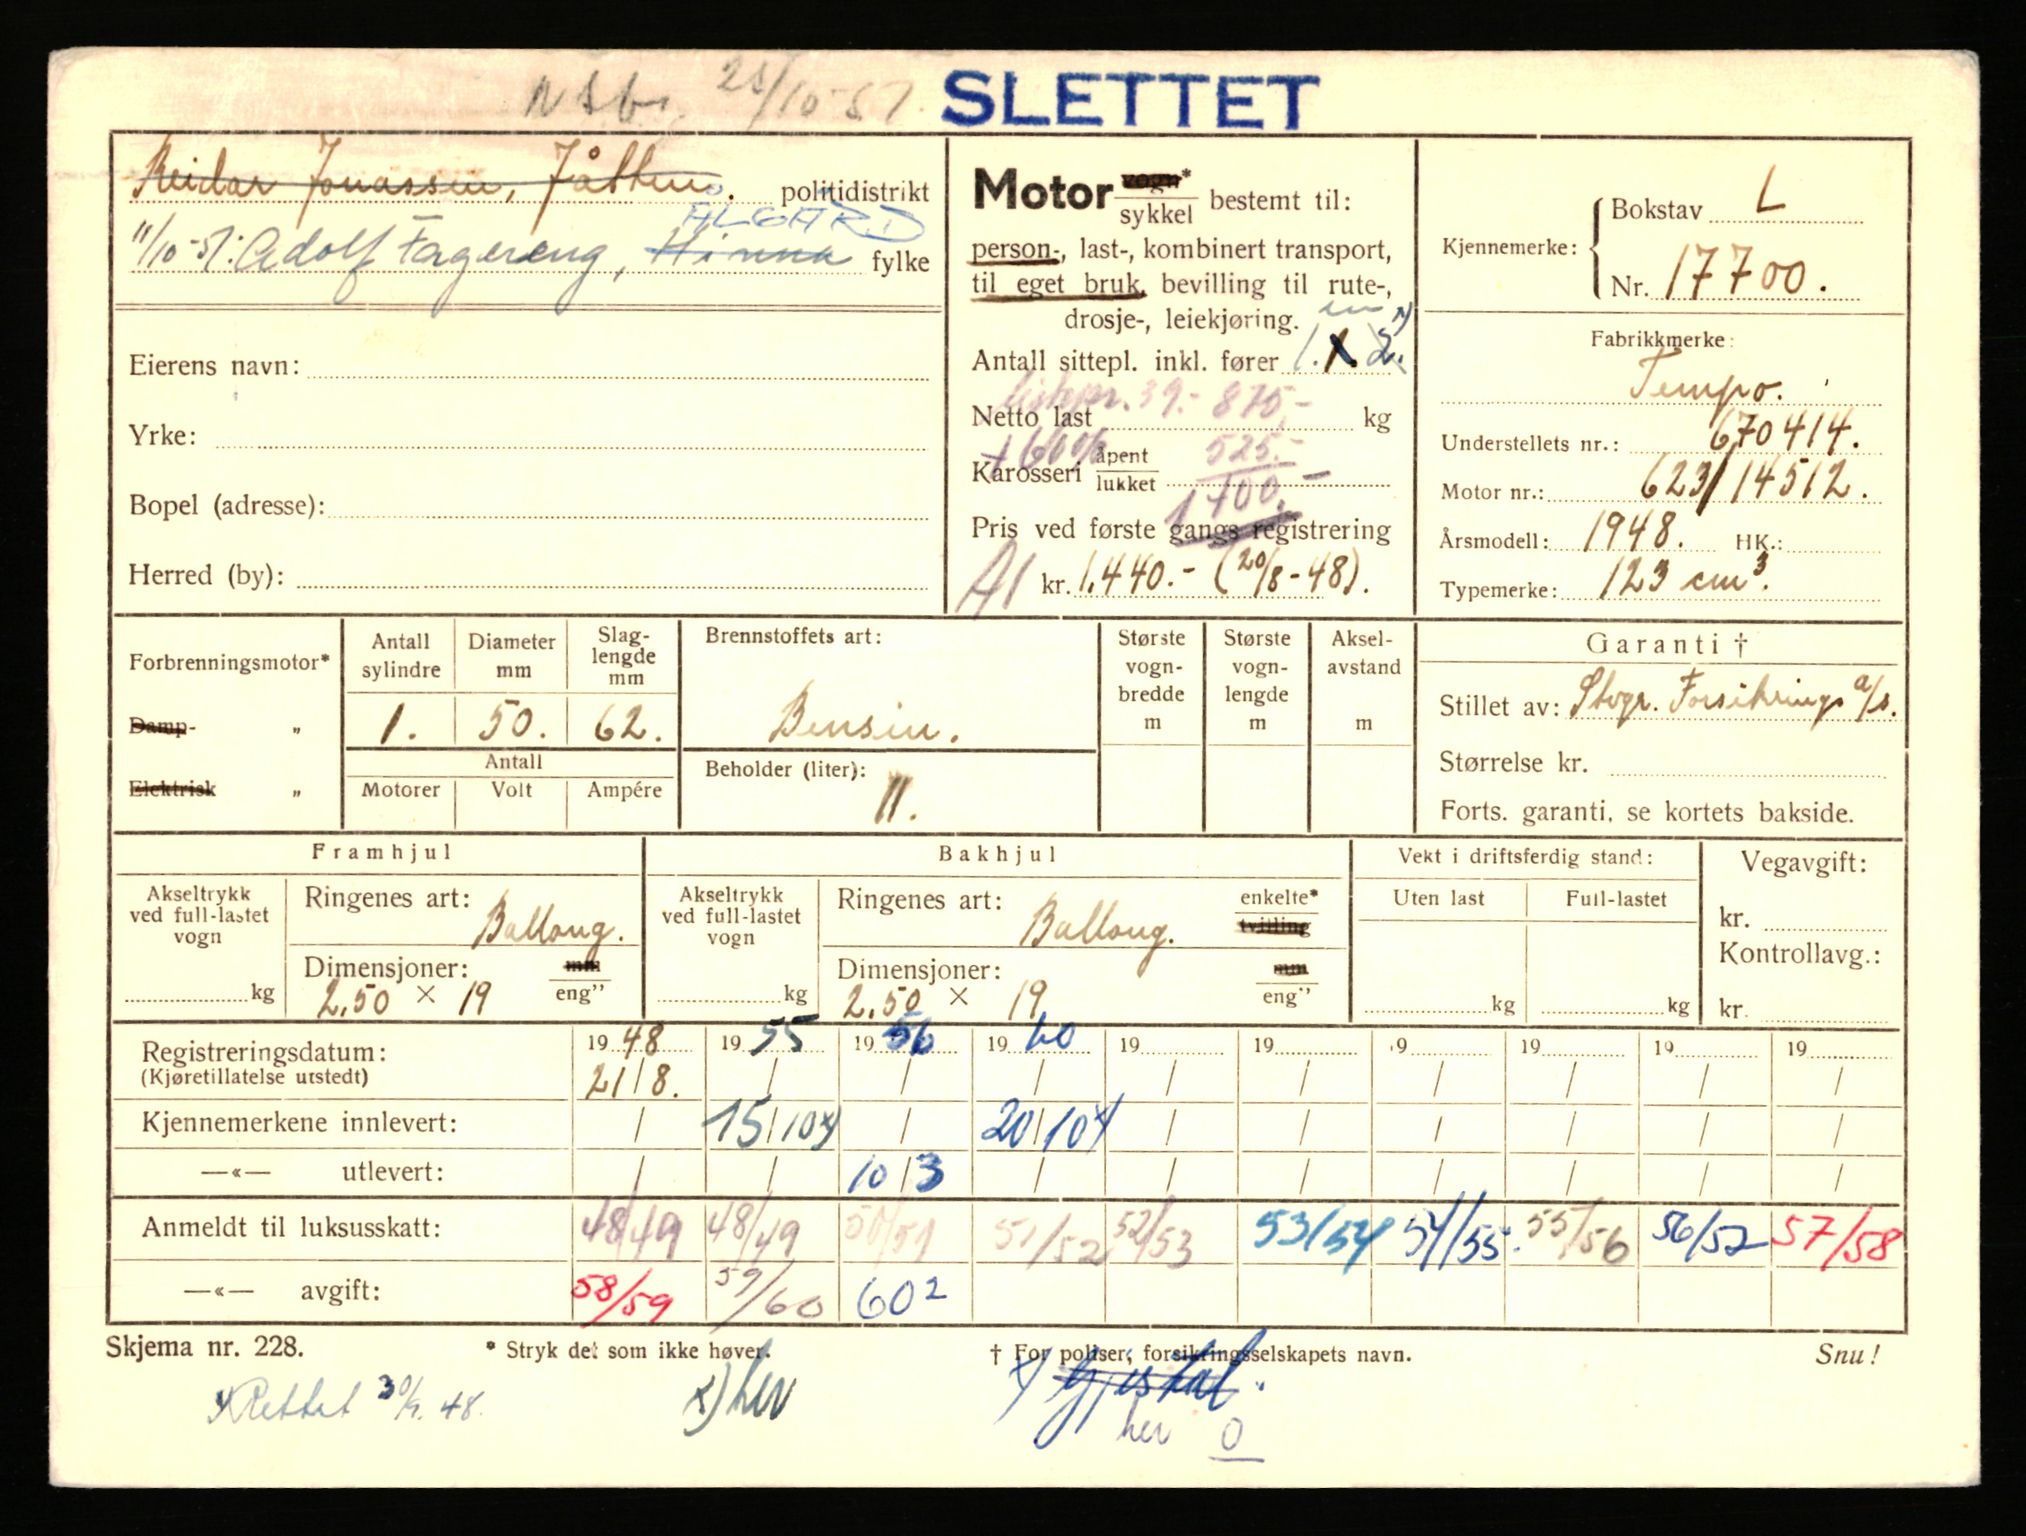 25/10-57. SLETTET
Reidar Jonassen, Jåtten. politidistrikt
ÅLGÅRD
11/10-57: Adolf Fagereng, Hinna fylke
Eierens navn:
Yrke:
Bopel (adresse):
Herred (by):
Motor vogn* sykkel bestemt til:
person-, last-, kombinert transport,
til eget bruk, bevilling til rute-,
drosje-, leiekjøring. en
Antall sittepl. inkl. fører 1. 2.
Listepr. 39.- 875,-
Netto last kg
+ 60% 525.-
Karosseri åpent lukket
1400,-
Pris ved første gangs registrering
A1 kr. 1.440.- (20/8-48).
Kjennemerke: Bokstav L
Nr. 17700.
Fabrikkmerke:
Tempo.
Understellets nr.: 670414.
Motor nr.: 623/14512.
Årsmodell: 1948. HK.:
Typemerke: 123 cm³.
Forbrenningsmotor*
Damp- „
Elektrisk „
Antall sylindre
Diameter mm
Slaglengde mm
1. 50. 62.
Antall
Motorer Volt Ampére
Brennstoffets art:
Bensin.
Beholder (liter):
11.
Største vognbredde m
Største vognlengde m
Akselavstand m
Garanti †
Stillet av: Stvgr. Forsikrings a/s.
Størrelse kr.
Forts. garanti, se kortets bakside.
Framhjul
Akseltrykk ved full-lastet vogn kg
Ringenes art: Ballong.
Dimensjoner: mm eng"
2.50 × 19
Bakhjul
Akseltrykk ved full-lastet vogn kg
Ringenes art: Ballong. enkelte* tvilling
Dimensjoner: mm eng"
2.50 × 19
Vekt i driftsferdig stand:
Uten last Full-lastet
kg kg
Vegavgift:
kr.
Kontrollavg.:
kr.
Registreringsdatum: 19 48 19 55 19 56 19 60 19 19 19 19 19 19
(Kjøretillatelse utstedt) 21/8. / / / / / / / / /
Kjennemerkene innlevert: / 15/10 x) / 20/10 x) / / / / / /
—«— utlevert: / / 10/3 / / / / / / /
Anmeldt til luksusskatt: 48/49 48/49 50/51 51/52 52/53 53/54 54/55 55/56 56/57 57/58
—«— avgift: 58/59 59/60 60²
Skjema nr. 228. * Stryk det som ikke høver. † For poliser, forsikringsselskapets navn. Snu!
x) Rettet 30/9. 48. x) her x) Gjestal.
her 0